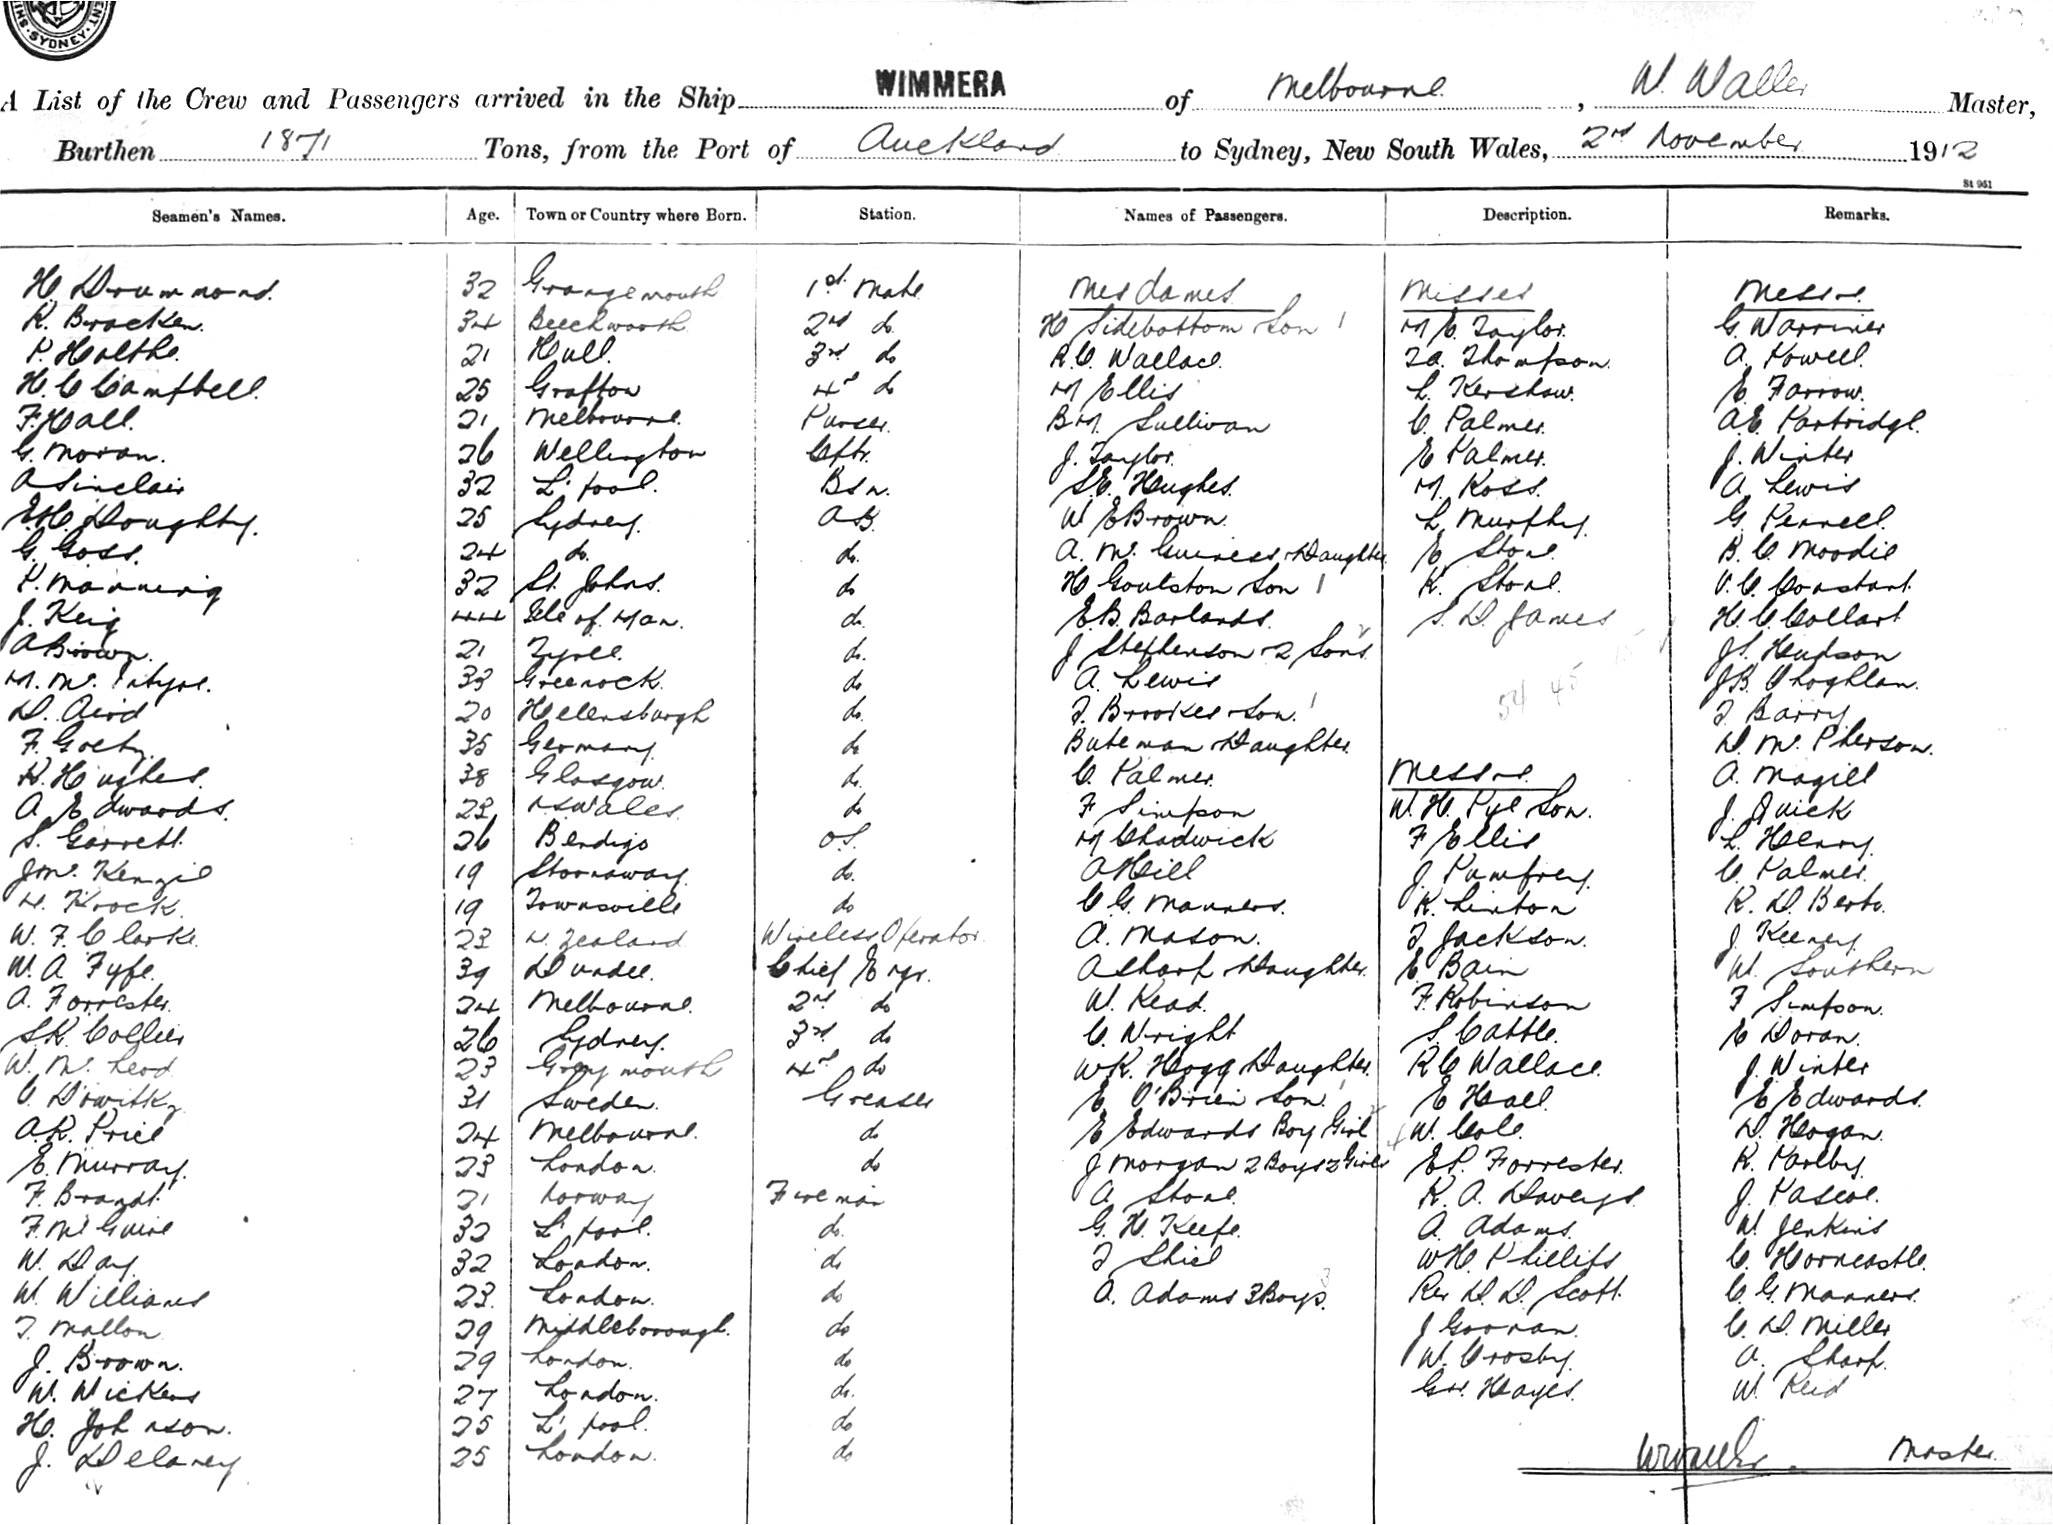 SYDNEY
A List of the Crew and Passengers arrived in the Ship WIMMERA of Melbourne, W. Waller Master,
Burthen 1871 Tons, from the Port of Auckland to Sydney, New South Wales, 2nd November 1912
St 961
Seamen's Names. Age. Town or Country where Born. Station. Names of Passengers. Description. Remarks.
H. Drummond. 32 Grangemouth 1st Mate Mesdames Misses Messrs
R. Bracken. 34 Beechworth 2nd do H Sidebottom Son 1 M E Taylor G. Warriner
P. Holthe. 21 Hull. 3rd do R.C. Wallace. Thompson. A. Powell.
H. C Campbell. 25 Grafton 4th do M Ellis L. Kershaw. E. Farrow.
F. Hall. 21 Melbourne. Purser. B M. Sullivan C. Palmer. A.E. Partridge.
G. Moran. 26 Wellington Cptr. J. Taylor. E Palmer. J. Winter
A Sinclair 32 L'pool. Bsn. S.E. Hughes. M. Ross. A Lewis
E.H. Doughty. 25 Sydney. AB. W E Brown. L. Murphy. G. Pennell.
G. Goss. 24 do. do. A. Mc Guiness Daughter E Stone B. C Moodie
P. Manning 32 St. Johns. do H Goulston Son 1 K. Stone. V. C. Constant.
J. Keig 44 Isle of Man. do. E.B. Barlands. S. D. James H. C. Collart
A Brown. 21 do. J Stephenson 2 Sons 2 J.S. Hudson
M. Mc Intyre. 33 Greenock. do A. Lewis 54 45 J.B. Choghlan.
D. Aird 20 Helensburgh do. T. Brookes Son. 1 T Barry
F. Goetz. 35 Germany. do Bateman Daughter D. Mc Pherson.
H. Hughes. 38 Glasgow. do. C. Palmer. Messrs A. Magill
A Edwards. 23 N.S. Wales. do F Simpson W. H. Pye Son. J. Quick
S. Garrett. 26 Bendigo OS. M Chadwick F Ellis L. Henry.
J Mc Kenzie 19 Stornaway. do. A Hill J. Pumfrey. C. Palmer.
H. Krock. 19 Townsville do C G. Manners. R. Linton R. D. Berto.
W. F. Clarke. 23 N. Zealand Wireless Operator. A. Mason. T Jackson. J Keeney.
W. A. Fyfe. 39 Dundee. Chief Engr. A Sharp Daughter. E Bain W. Southern
A. Forrester. 24 Melbourne. 2nd do W. Read. F. Robinson F Simpson.
S.R. Collier 26 Sydney. 3rd do C. Wright S. Cattle. E Doran.
W. Mc Leod 23 Greymouth 4th do W R. Hogg Daughter. R C Wallace. J. Winter
C. Dowitky 31 Sweden. Greaser E O'Brien Son. 1 E Hall. E Edwards.
A.R. Price 24 Melbourne. do E Edwards Boy Girl 2 W. Cole. D. Hogan.
E. Murray. 23 London. do J Morgan 2 Boys 2 Girls 4 E.P. Forrester. R. Parlby.
F. Brandt. 21 Norway Fireman A Stone. R. A. Daveys. J. Pascoe.
F. Mc Guire 32 L'pool. do. G. H. Keefe. A. Adams. W. Jenkins
W. Day. 32 London. do T Shiel W H. Phillips C. Horncastle.
W. Williams 23. London. do A. Adams 3 Boys. 3 Rev D. D. Scott. C G. Manners.
T. Mallon 29 Middleborough. do J Goonan. C. D. Miller
J. Brown. 29 London. do W. Crosby. A. Sharp.
W. Wickens 27 London. do. G.H. Hayes. W. Reid
H. Johnson. 25 L'pool. do
J. Delaney 25 London. do W Waller Master